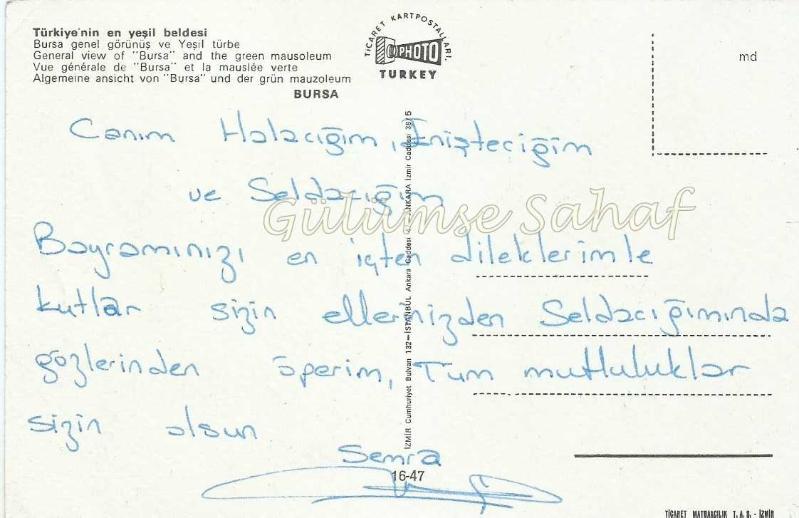 Türkiye'nin en yeşil beldesi
Bursa genel görünüş ve Yeşil türbe
General view of "Bursa" and the green mausoleum
Vue générale de "Bursa" et la mauslée verte
Algemeine ansicht von "Bursa" und der grün mauzoleum
BURSA
TİCARET KARTPOSTALLARI,
PHOTO
TURKEY
md
Canım Halacığım, Enişteciğim
ve Seldacığım
Gülümse Sahaf
Bayramınızı en içten dileklerimle
kutlar sizin ellerinizden Seldacığımında
gözlerinden öperim, Tüm mutluluklar
sizin olsun
Semra
16-47
İZMİR Cumhuriyet Bulvarı 132-İSTANBUL Ankara Caddesi ANKARA İzmir Caddesi
TİCARET MATBAACILIK T.A.Ş. - İZMİR